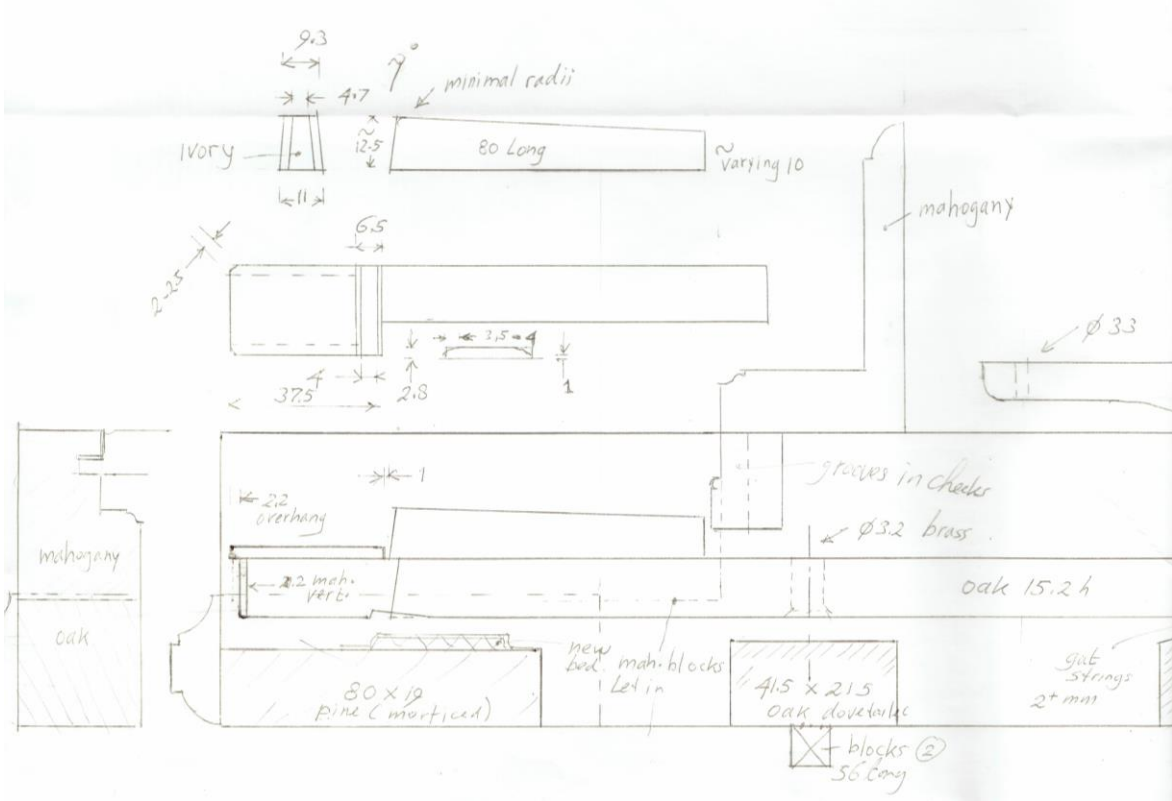 9.3
7°
minimal radii
4.7
Ivory
~
12.5
80 Long
~
varying 10
11
mahogany
6.5
2-2.5
Ø 33
3,5
4
1
4
2.8
37.5
1
grooves in cheeks
2.2
overhang
Ø3.2 brass
mahogany
2.2 mah.
vert.
oak 15.2 h
oak
new
mah. blocks
Let in
80 X 19
pine (morticed)
41.5 X 21.5
oak dovetailed
gut
strings
2+ mm
blocks ②
56 long